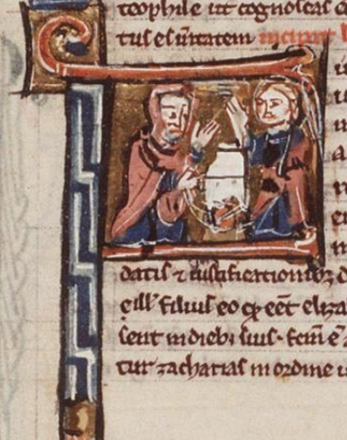 teophile ut cognoscas
tus es ūitatem incipit
datis ⁊ iustificationibꝫ d
eill' filius eo ꝙ eēt eliza
sent in diebꝫ suis ·
tur zacharias in ordine u